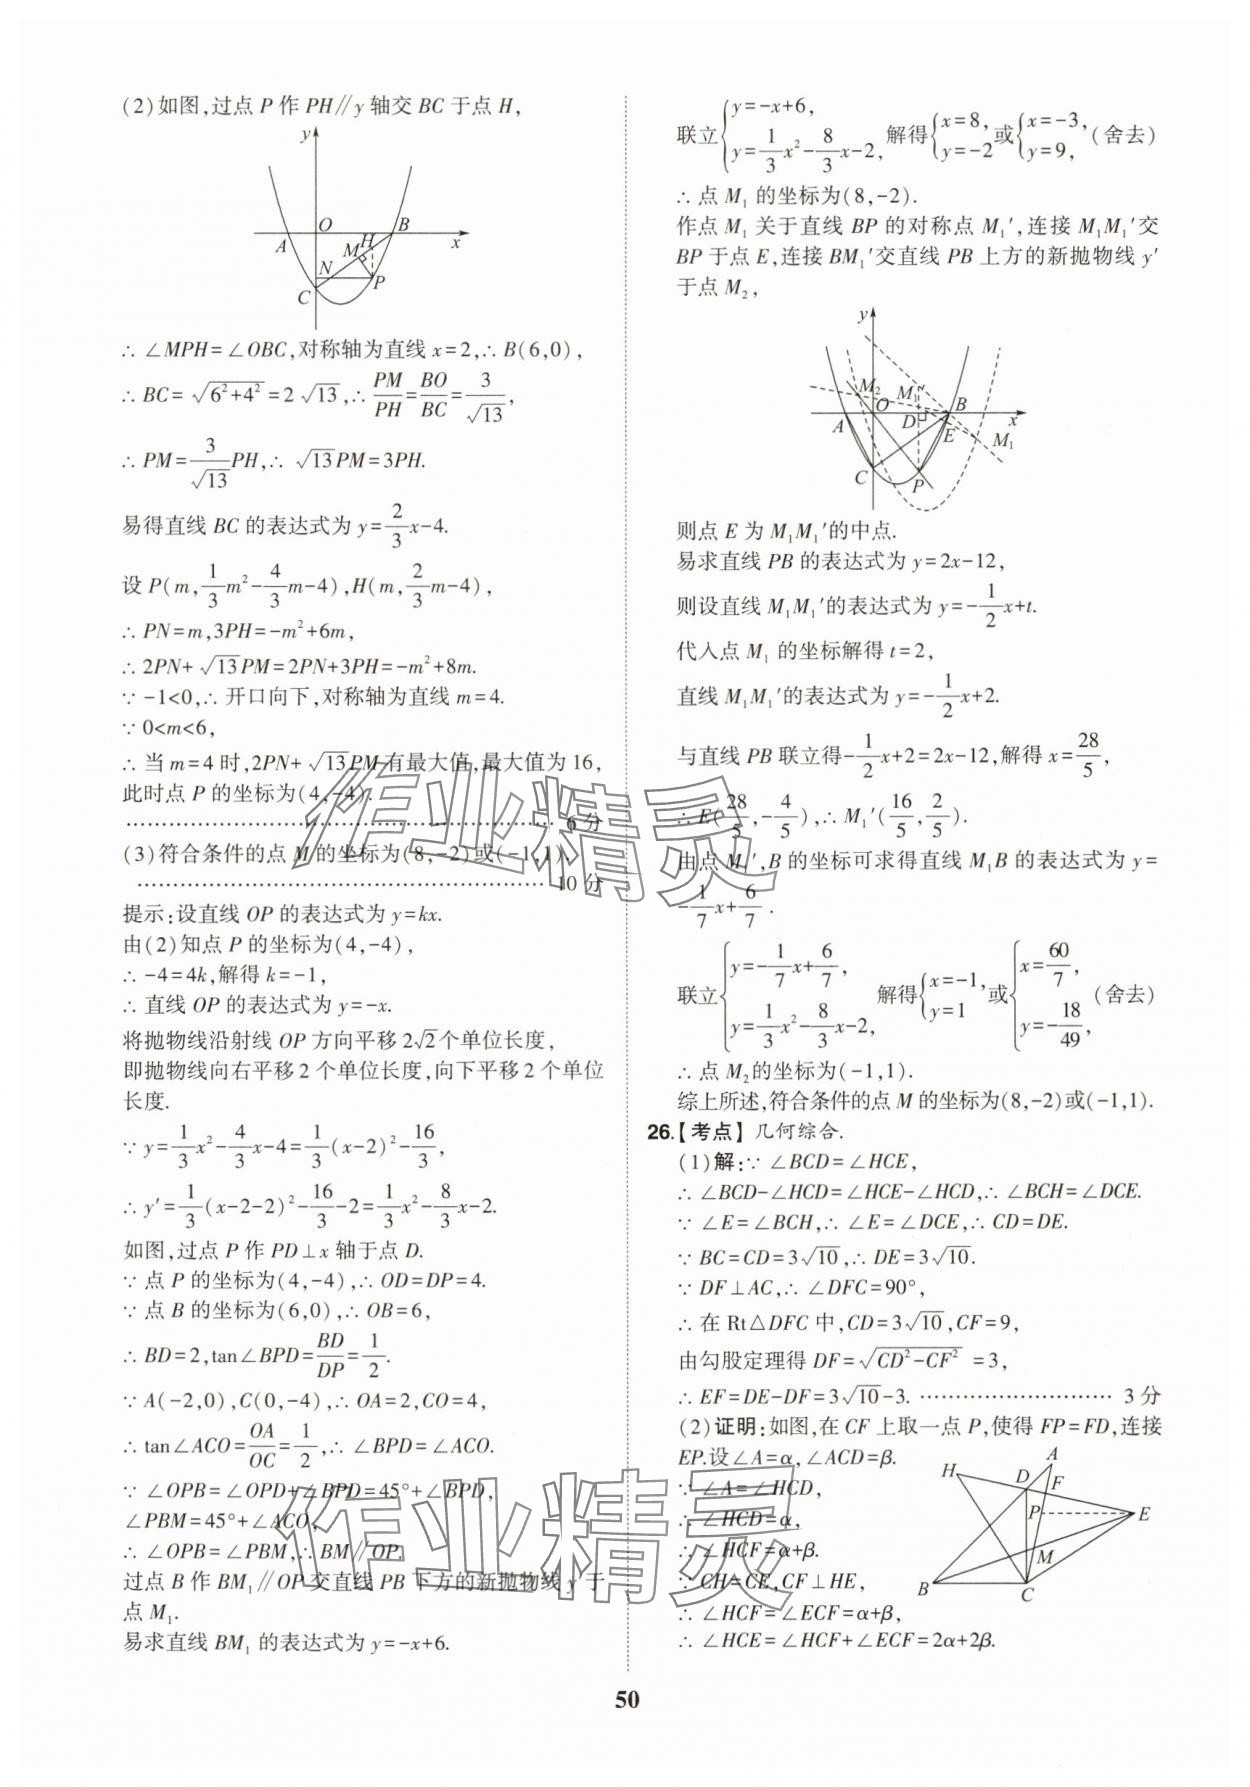 (2)如图,过点 P 作 PH∥y 轴交 BC 于点 H,
y
A
O
H
B
x
M
N
P
C
∴ ∠MPH=∠OBC,对称轴为直线 x=2,∴ B(6,0),
∴ BC=√(6²+4²)=2√13,∴ PM/PH=BO/BC=3/√13,
∴ PM=3/√13 PH,∴ √13PM=3PH.
易得直线 BC 的表达式为 y=2/3 x-4.
设 P(m,1/3 m²-4/3 m-4),H(m,2/3 m-4),
∴ PN=m,3PH=-m²+6m,
∴ 2PN+√13PM=2PN+3PH=-m²+8m.
∵ -1<0,∴ 开口向下,对称轴为直线 m=4.
∵ 0<m<6,
∴ 当 m=4 时,2PN+√13PM 有最大值,最大值为 16,
此时点 P 的坐标为(4,-4).
…………………………………………………… 6 分
(3)符合条件的点 M 的坐标为(8,-2)或(-1,1).
………………………………………………… 10 分
提示:设直线 OP 的表达式为 y=kx.
由(2)知点 P 的坐标为(4,-4),
∴ -4=4k,解得 k=-1,
∴ 直线 OP 的表达式为 y=-x.
将抛物线沿射线 OP 方向平移 2√2个单位长度,
即抛物线向右平移 2 个单位长度,向下平移 2 个单位
长度.
∵ y=1/3 x²-4/3 x-4=1/3(x-2)²-16/3,
∴ y′=1/3(x-2-2)²-16/3-2=1/3 x²-8/3 x-2.
如图,过点 P 作 PD⊥x 轴于点 D.
∵ 点 P 的坐标为(4,-4),∴ OD=DP=4.
∵ 点 B 的坐标为(6,0),∴ OB=6,
∴ BD=2,tan∠BPD=BD/DP=1/2.
∵ A(-2,0),C(0,-4),∴ OA=2,CO=4,
∴ tan∠ACO=OA/OC=1/2,∴ ∠BPD=∠ACO.
∵ ∠OPB=∠OPD+∠BPD=45°+∠BPD,
∠PBM=45°+∠ACO,
∴ ∠OPB=∠PBM,∴ BM∥OP.
过点 B 作 BM₁∥OP 交直线 PB 下方的新抛物线 y′于
点 M₁.
易求直线 BM₁ 的表达式为 y=-x+6.
联立{y=-x+6, y=1/3 x²-8/3 x-2, 解得{x=8, y=-2 或{x=-3, y=9, (舍去)
∴ 点 M₁ 的坐标为(8,-2).
作点 M₁ 关于直线 BP 的对称点 M₁′,连接 M₁M₁′交
BP 于点 E,连接 BM₁′交直线 PB 上方的新抛物线 y′
于点 M₂,
y
M₂
M₁′
O
B
A
D
E
x
M₁
C
P
则点 E 为 M₁M₁′的中点.
易求直线 PB 的表达式为 y=2x-12,
则设直线 M₁M₁′的表达式为 y=-1/2 x+t.
代入点 M₁ 的坐标解得 t=2,
直线 M₁M₁′的表达式为 y=-1/2 x+2.
与直线 PB 联立得-1/2 x+2=2x-12,解得 x=28/5,
∴ E(28/5,-4/5),∴ M₁′(16/5,2/5).
由点 M₁′,B 的坐标可求得直线 M₁B 的表达式为 y=
-1/7 x+6/7.
联立{y=-1/7 x+6/7, y=1/3 x²-8/3 x-2, 解得{x=-1, y=1 或{x=60/7, y=-18/49, (舍去)
∴ 点 M₂的坐标为(-1,1).
综上所述,符合条件的点 M 的坐标为(8,-2)或(-1,1).
26.【考点】几何综合.
(1)解:∵ ∠BCD=∠HCE,
∴ ∠BCD-∠HCD=∠HCE-∠HCD,∴ ∠BCH=∠DCE.
∵ ∠E=∠BCH,∴ ∠E=∠DCE,∴ CD=DE.
∵ BC=CD=3√10,∴ DE=3√10.
∵ DF⊥AC,∴ ∠DFC=90°,
∴ 在 Rt△DFC 中,CD=3√10,CF=9,
由勾股定理得 DF=√(CD²-CF²)=3,
∴ EF=DE-DF=3√10-3. ……………………… 3 分
(2)证明:如图,在 CF 上取一点 P,使得 FP=FD,连接
EP.设∠A=α,∠ACD=β.
∵ ∠A=∠HCD,
∴ ∠HCD=α,
∴ ∠HCF=α+β.
∵ CH=CE,CF⊥HE,
∴ ∠HCF=∠ECF=α+β,
∴ ∠HCE=∠HCF+∠ECF=2α+2β.
H
D
A
F
P
E
M
B
C
作业精灵
作业精灵
50